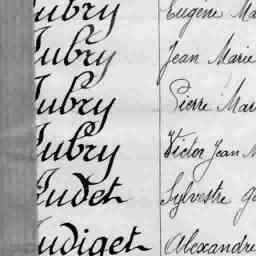 Aubry Eugène Ma
Aubry Jean Marie
Aubry Pierre Mar
Aubry Victor Jean M
Audet Sylvestre
Audiget Alexandre